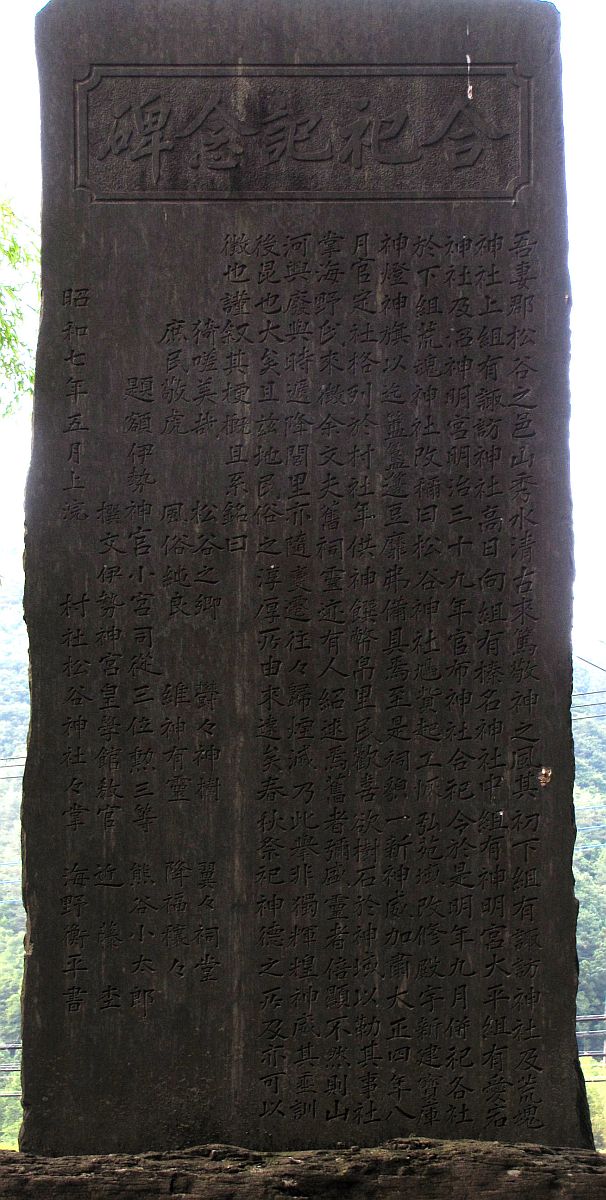 合祀記念碑
吾妻郡松谷之邑山秀水清古來篤敬神之風其初下組有諏訪神社及荒魂
神社上組有諏訪神社高日向組有榛名神社中組有神明宮大平組有愛宕
神社及沼神明宮明治三十九年官布神社合祀令於是明年九月併祀各社
於下組荒魂神社改稱曰松谷神社地貲起工仍弘苑域改修殿宇新建寶庫
神燈神旗以迄簠簋籩豆靡弗備具焉至是祠貌一新神威加蘭大正四年八
月官定社格列於村社年供神饌幣帛里民歡喜欲樹石於神域以勒其事社
掌海野氏來徵余文夫舊祠靈迹有人紹述焉舊者彌盛靈者倍顯不然則山
河興廢與時遞降閭里亦隨變遷往々歸煙滅乃此擧非獨輝煌神威其垂訓
後昆也大矣且玆地民俗之淳厚所由來遠矣春秋祭祀神德之所及亦可以
徵也謹叙其梗概且系銘曰
猗嗟美哉 松谷之鄉 欝々神樹 翼々祠堂
庶民敬虔 風俗純良 維神有靈 降福穰々
題額伊勢神宮小宮司從三位勲三等 熊谷小太郎
撰文伊勢神宮皇學館教官 近藤 杢
昭和七年五月上浣 村社松谷神社々掌 海野衡平書